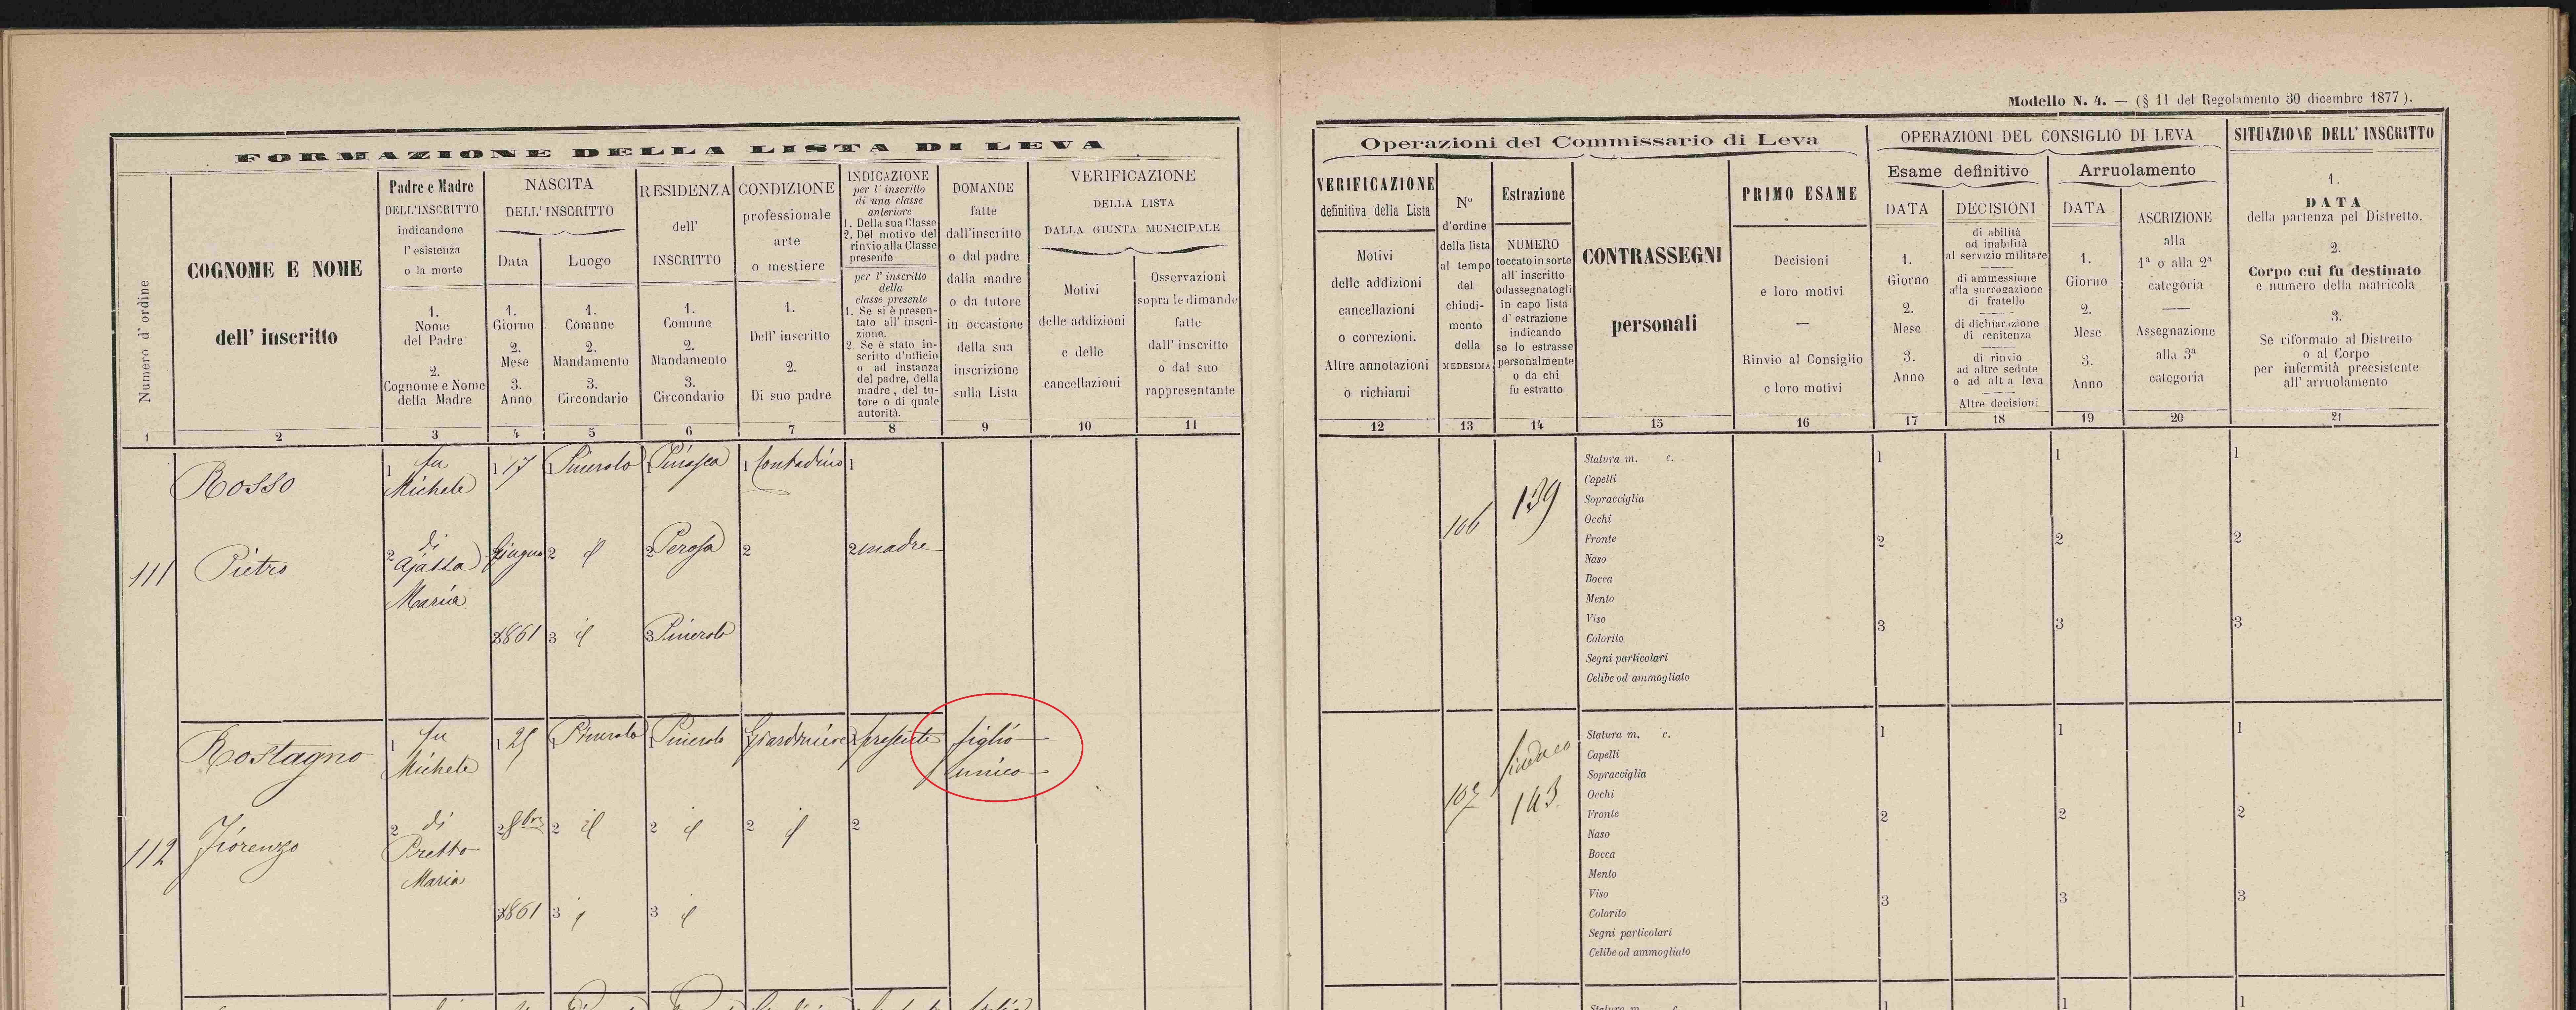 Modello N. 4. — (§ 11 del Regolamento 30 dicembre 1877).
FORMAZIONE DELLA LISTA DI LEVA
Numero d' ordine
1
COGNOME E NOME
dell' inscritto
2
Padre e Madre
DELL'INSCRITTO
indicandone
l'esistenza
o la morte
1.
Nome
del Padre
2.
Cognome e Nome
della Madre
3
NASCITA
DELL'INSCRITTO
Data
1.
Giorno
2.
Mese
3.
Anno
4
Luogo
1.
Comune
2.
Mandamento
3.
Circondario
5
RESIDENZA
dell'
INSCRITTO
1.
Comune
2.
Mandamento
3.
Circondario
6
CONDIZIONE
professionale
arte
o mestiere
1.
Dell' inscritto
2.
Di suo padre
7
INDICAZIONE
per l' inscritto
di una classe
anteriore
1. Della sua Classe
2. Del motivo del
rinvio alla Classe
presente
per l' inscritto
della
classe presente
1. Se si è presen-
tato all' inscri-
zione.
2. Se è stato in-
scritto d'ufficio
o ad instanza
del padre, della
madre, del tu-
tore o di quale
autorità.
8
DOMANDE
fatte
dall'inscritto
o dal padre
dalla madre
o da tutore
in occasione
della sua
inscrizione
sulla Lista
9
VERIFICAZIONE
DELLA LISTA
DALLA GIUNTA MUNICIPALE
Motivi
delle addizioni
e delle
cancellazioni
10
Osservazioni
sopra le dimande
fatte
dall' inscritto
o dal suo
rappresentante
11
Operazioni del Commissario di Leva
VERIFICAZIONE
definitiva della Lista
Motivi
delle addizioni
cancellazioni
o correzioni.
Altre annotazioni
o richiami
12
N°
d'ordine
della lista
al tempo
del
chiudi-
mento
della
MEDESIMA
13
Estrazione
NUMERO
toccato in sorte
all' inscritto
od assegnatogli
in capo lista
d' estrazione
indicando
se lo estrasse
personalmente
o da chi
fu estratto
14
CONTRASSEGNI
personali
15
PRIMO ESAME
Decisioni
e loro motivi
—
Rinvio al Consiglio
e loro motivi
16
OPERAZIONI DEL CONSIGLIO DI LEVA
Esame definitivo
DATA
1.
Giorno
2.
Mese
3.
Anno
17
DECISIONI
di abilità
od inabilità
al servizio militare
di ammessione
alla surrogazione
di fratello
di dichiarazione
di renitenza
di rinvio
ad altre sedute
o ad altra leva
Altre decisioni
18
Arruolamento
DATA
1.
Giorno
2.
Mese
3.
Anno
19
ASCRIZIONE
alla
1ª o alla 2ª
categoria
Assegnazione
alla 3ª
categoria
20
SITUAZIONE DELL' INSCRITTO
1.
DATA
della partenza pel Distretto.
2.
Corpo cui fu destinato
e numero della matricola
3.
Se riformato al Distretto
o al Corpo
per infermità preesistente
all' arruolamento
21
111
Rosso
Pietro
1 fu
Michele
2 di
Ajassa
Maria
1 17
2 Giugno
3 1861
1 Pinerolo
2 id
3 id
1 Pinasca
2 Perosa
3 Pinerolo
1 Contadino
2
1
2 madre
106
139
Statura m. c.
Capelli
Sopracciglia
Occhi
Fronte
Naso
Bocca
Mento
Viso
Colorito
Segni particolari
Celibe od ammogliato
1
2
3
1
2
3
1
2
3
112
Rostagno
Fiorenzo
1 fu
Michele
2 di
Pretto
Maria
1 25
2 8bre
3 1861
1 Pinerolo
2 id
3 id
1 Pinerolo
2 id
3 id
1 Giardiniere
2 id
1 presente
2
figlio
unico
107
Sindaco
143
Statura m. c.
Capelli
Sopracciglia
Occhi
Fronte
Naso
Bocca
Mento
Viso
Colorito
Segni particolari
Celibe od ammogliato
1
2
3
1
2
3
1
2
3
Statura m. c.
1
1
1